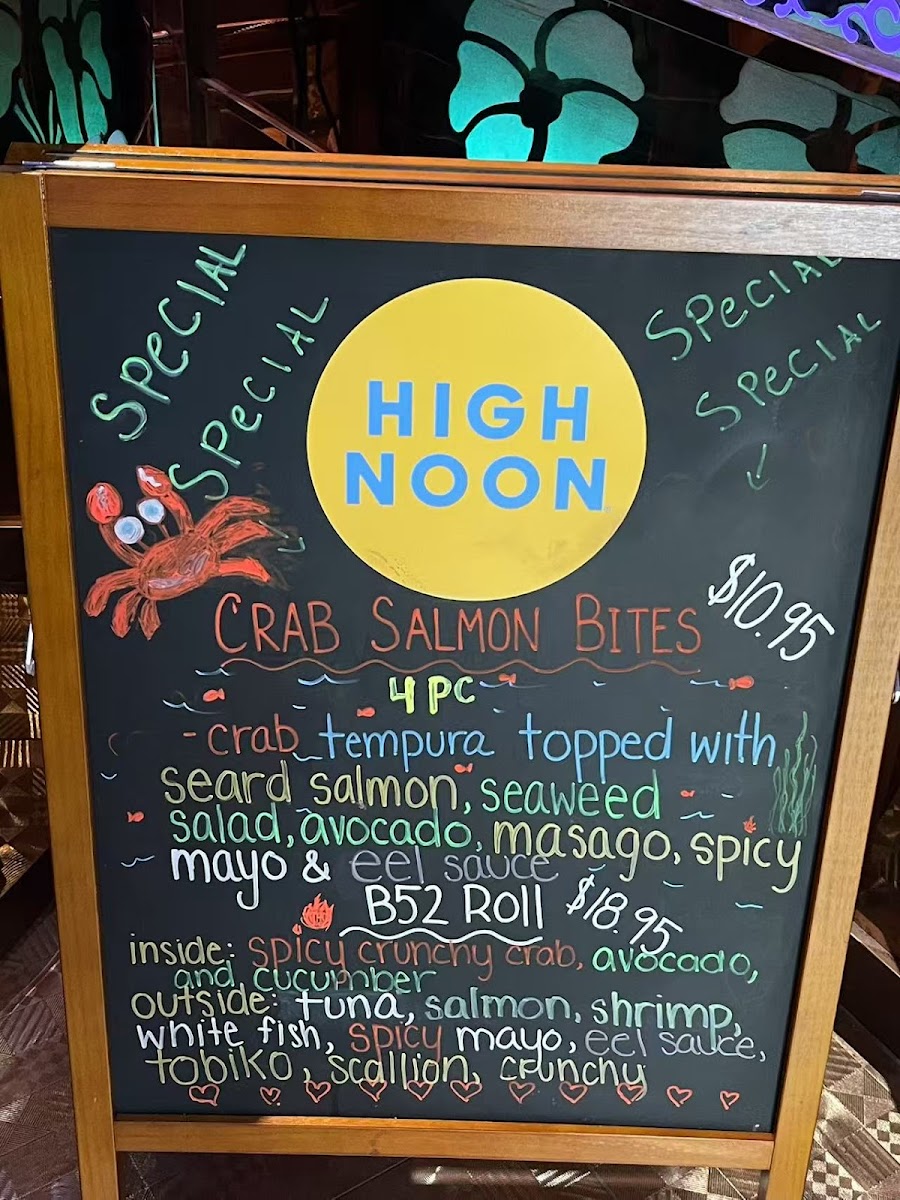 SPeCIAL
SPeCIAL
SPeCIAL
SPeCIAL
HIGH
NOON
CRAB SALMON BITES
$10.95
4 PC
- crab tempura topped with
seard salmon, seaweed
salad, avocado, masago, spicy
mayo & eel sauce
B52 Roll $18.95
inside: spicy crunchy crab, avocado,
and cucumber
outside: tuna, salmon, shrimp,
white fish, spicy mayo, eel sauce,
tobiko, scallion, crunchy